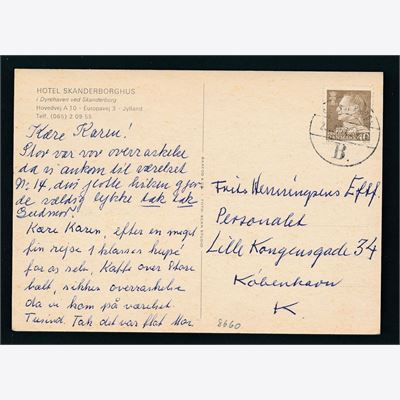 HOTEL SKANDERBORGHUS
i Dyrehaven ved Skanderborg
Hovedvej A 10 - Europavej 3 - Jylland
Telf. (065) 2 09 55
Kære Karen!
Stor var vor overraskelse
da vi ankom til værelset
Nr. 14, din flotte hilsen gjorde
de vældig lykke tak tak
Gudmor
Kære Karen, efter en meget
fin rejse 1 klasses kupé
for os selv, Kaffe over Store
bælt, sikken overraskelse
da vi kom på værelset.
Tusind Tak det var flot
Frits Henningsens Eftf
Personalet
Lille Kongensgade 34
København
K
8660
B